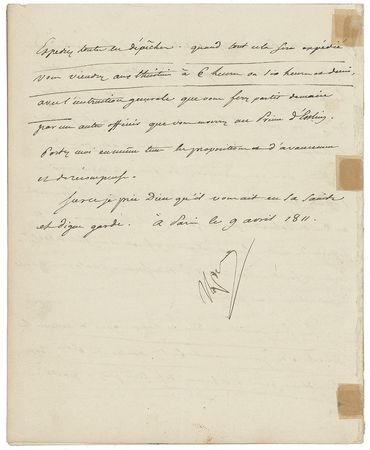 Expediez toute les dépêches. quand tout cela sera expédié
vous viendrez aux théatin à 6 heures ou 6 heures et demi,
avec l'instruction generale que vous ferez partir demain
par un autre officier que vous enverrez au Prince d'Essling.
Portez moi en même tems les propositions d'avancement
et de récompense.
Sur ce je prie Dieu qu'il vous ait en sa sainte
et digne garde. à Paris le 9 avril 1811.